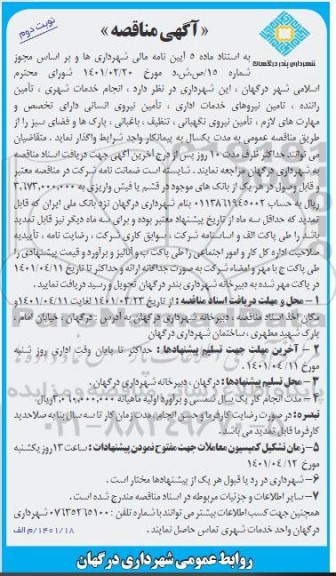 نوبت دوم
« آگهی مناقصه »
شهرداری بندر درگهان
به استناد ماده ۵ آیین نامه مالی شهرداری ها و بر اساس مجوز
شماره ۱۵/ص.ش.د مورخ ۱۴۰۱/۰۲/۲۰ شورای محترم
اسلامی شهر درگهان ، این شهرداری در نظر دارد ، انجام خدمات شهری ، تأمین
راننده ، تامین نیروهای خدمات اداری ، تأمین نیروی انسانی دارای تخصص و
مهارت های لازم ، تأمین نیروی نگهبانی ، تنظیف ، باغبانی ، پارک ها و فضای سبز را از
طریق مناقصه عمومی به مدت یکسال به پیمانکار واجد شرایط واگذار نماید . متقاضیان
می توانند حداکثر ظرف مدت ۱۰ روز پس از درج آخرین آگهی جهت دریافت اسناد مناقصه
به شهرداری درگهان مراجعه نمایند . شایسته است ضمانت نامه شرکت در مناقصه معتبر
و قابل وصول در هر یک از بانک های موجود در قشم یا فیش واریزی به ۳,۱۷۳,۰۰۰,۰۰۰
ریال به حساب ۰۱۱۳۸۶۱۹۴۵۰۰۲ بنام شهرداری درگهان نزد بانک ملی ایران که قابل
تمدید که حداقل سه ماه از تاریخ پیشنهاد معتبر بوده و برای سه ماه دیگر نیز قابل تمدید
باشد را طی پاکت الف و اساسنامه شرکت ، سوابق کاری شرکت ، رضایت نامه ، تأییدیه
صلاحیت اداره کل کار و امور اجتماعی را طی پاکت ب و آنالیز و برآورد و قیمت پیشنهادی را
طی پاکت ج با مهر و امضاء شرکت به صورت جداگانه ارائه و حداکثر تا تاریخ ۱۴۰۱/۰۴/۱۱
در پاکت مهر شده به دبیرخانه شهرداری بندر درگهان تحویل و رسید دریافت نمایید.
۱ - محل و مهلت دریافت اسناد مناقصه : از تاریخ ۱۴۰۱/۰۳/۲۲ لغایت ۱۴۰۱/۰۴/۱۱ و
مکان اخذ اسناد مناقصه ، دبیرخانه شهرداری درگهان به آدرس : درگهان ، خیابان امام ،
پارک شهید مطهری ، ساختمان شهرداری درگهان
۲ - آخرین مهلت جهت تسلیم پیشنهادها : حداکثر تا پایان وقت اداری روز شنبه
مورخ ۱۴۰۱/۰۴/۱۱
۳ - محل تسلیم پیشنهادها : درگهان ، دبیرخانه شهرداری درگهان.
۴ - مدت انجام کار یک سال شمسی و برآورد اولیه ماهیانه ریال.
تبصره : در صورت رضایت کارفرما و حسن انجام ، مدت زمان کار تا سه سال بنا به صلاحدید
کارفرما قابل تمدید می باشد.
۵ - زمان تشکیل کمیسیون معاملات جهت مفتوح نمودن پیشنهادات : ساعت ۱۳ روز یکشنبه
مورخ ۱۴۰۱/۰۴/۱۲
۶ - شهرداری در رد یا قبول هر یک از پیشنهادها مختار است .
۷ - سایر اطلاعات و جزئیات مربوطه در اسناد مناقصه مندرج شده است .
همچنین جهت کسب اطلاعات بیشتر می توانند با شماره تلفن : ۰۷۶۳۵۲۱۵۱۰۰ شهرداری
درگهان واحد خدمات شهری تماس حاصل نمایند . ۱۴۰۱/۱۸/م الف
روابط عمومی شهرداری درگهان